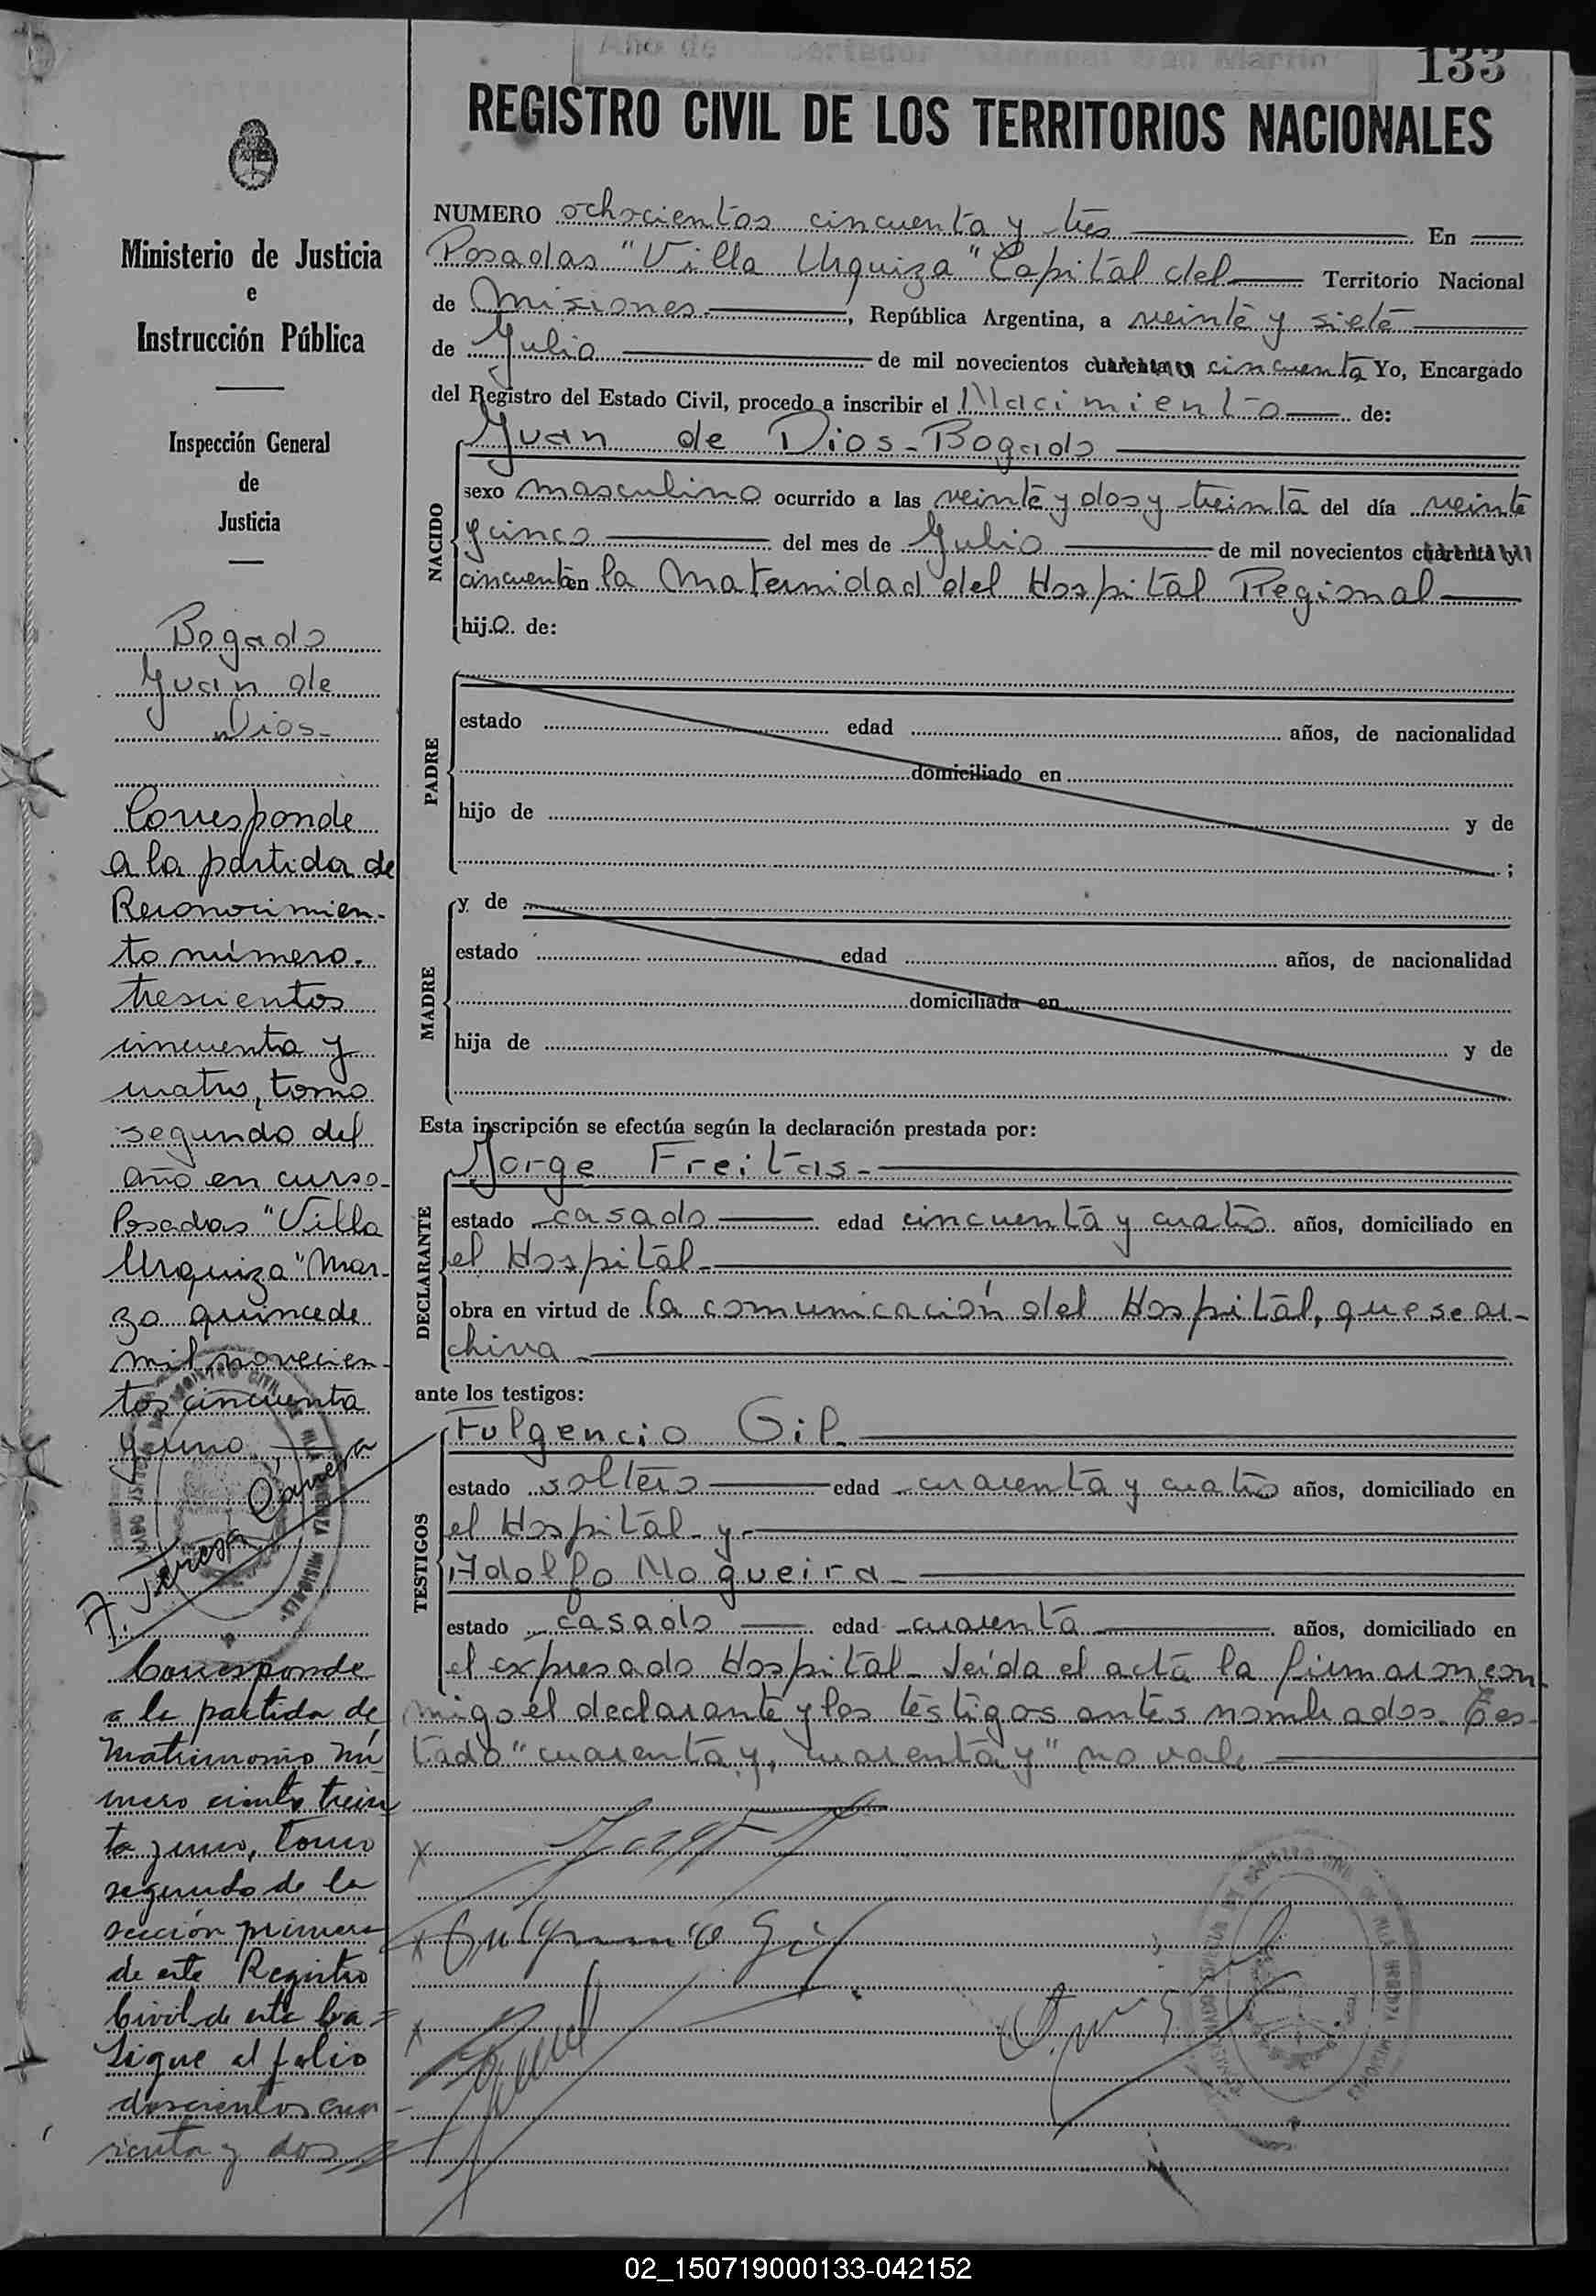 Año de Libertador General San Martín
133
REGISTRO CIVIL DE LOS TERRITORIOS NACIONALES
Ministerio de Justicia
e
Instrucción Pública
Inspección General
de
Justicia
Bogado
Juan de
Dios-
Corresponde
a la partida de
Reconocimien-
to número.
trescientos
cincuenta y
cuatro, tomo
segundo del
año en curso-
Posadas "Villa
Urquiza" Mar-
zo quince de
mil novecien-
tos cincuenta
y uno
A. Teresa
Corresponde
a la partida de
Matrimonio nú
mero ciento trein
ta y uno, Tomo
segundo de la
sección primera
de este Registro
Civil de esta Ca=
Sigue al folio
doscientos cua-
renta y dos
NUMERO ochocientos cincuenta y tres En
Posadas "Villa Urquiza" Capital del Territorio Nacional
de Misiones, República Argentina, a veinte y siete
de Julio de mil novecientos cuarenta y cincuenta Yo, Encargado
del Registro del Estado Civil, procedo a inscribir el Nacimiento de:
NACIDO
Juan de Dios-Bogado
sexo masculino ocurrido a las veinte y dos y treinta del día veinte
y cinco del mes de Julio de mil novecientos cuarenta y
cincuenta en la Maternidad del Hospital Regional
hijo de:
PADRE
estado edad años, de nacionalidad
domiciliado en
hijo de y de
;
MADRE
y de
estado edad años, de nacionalidad
domiciliada en
hija de y de
Esta inscripción se efectúa según la declaración prestada por:
DECLARANTE
Jorge Freitas-
estado casado edad cincuenta y cuatro años, domiciliado en
el Hospital-
obra en virtud de la comunicación del Hospital, que se ar-
chiva-
ante los testigos:
TESTIGOS
Fulgencio Gil-
estado soltero edad cuarenta y cuatro años, domiciliado en
el Hospital- y-
Adolfo Nogueira-
estado casado edad cuarenta años, domiciliado en
el expresado Hospital- Leída el acta la firmaron con
migo el declarante y los testigos antes nombrados. Tes-
tado "cuarenta y, cuarenta y" no vale
Fulgencio Gil
02_150719000133-042152